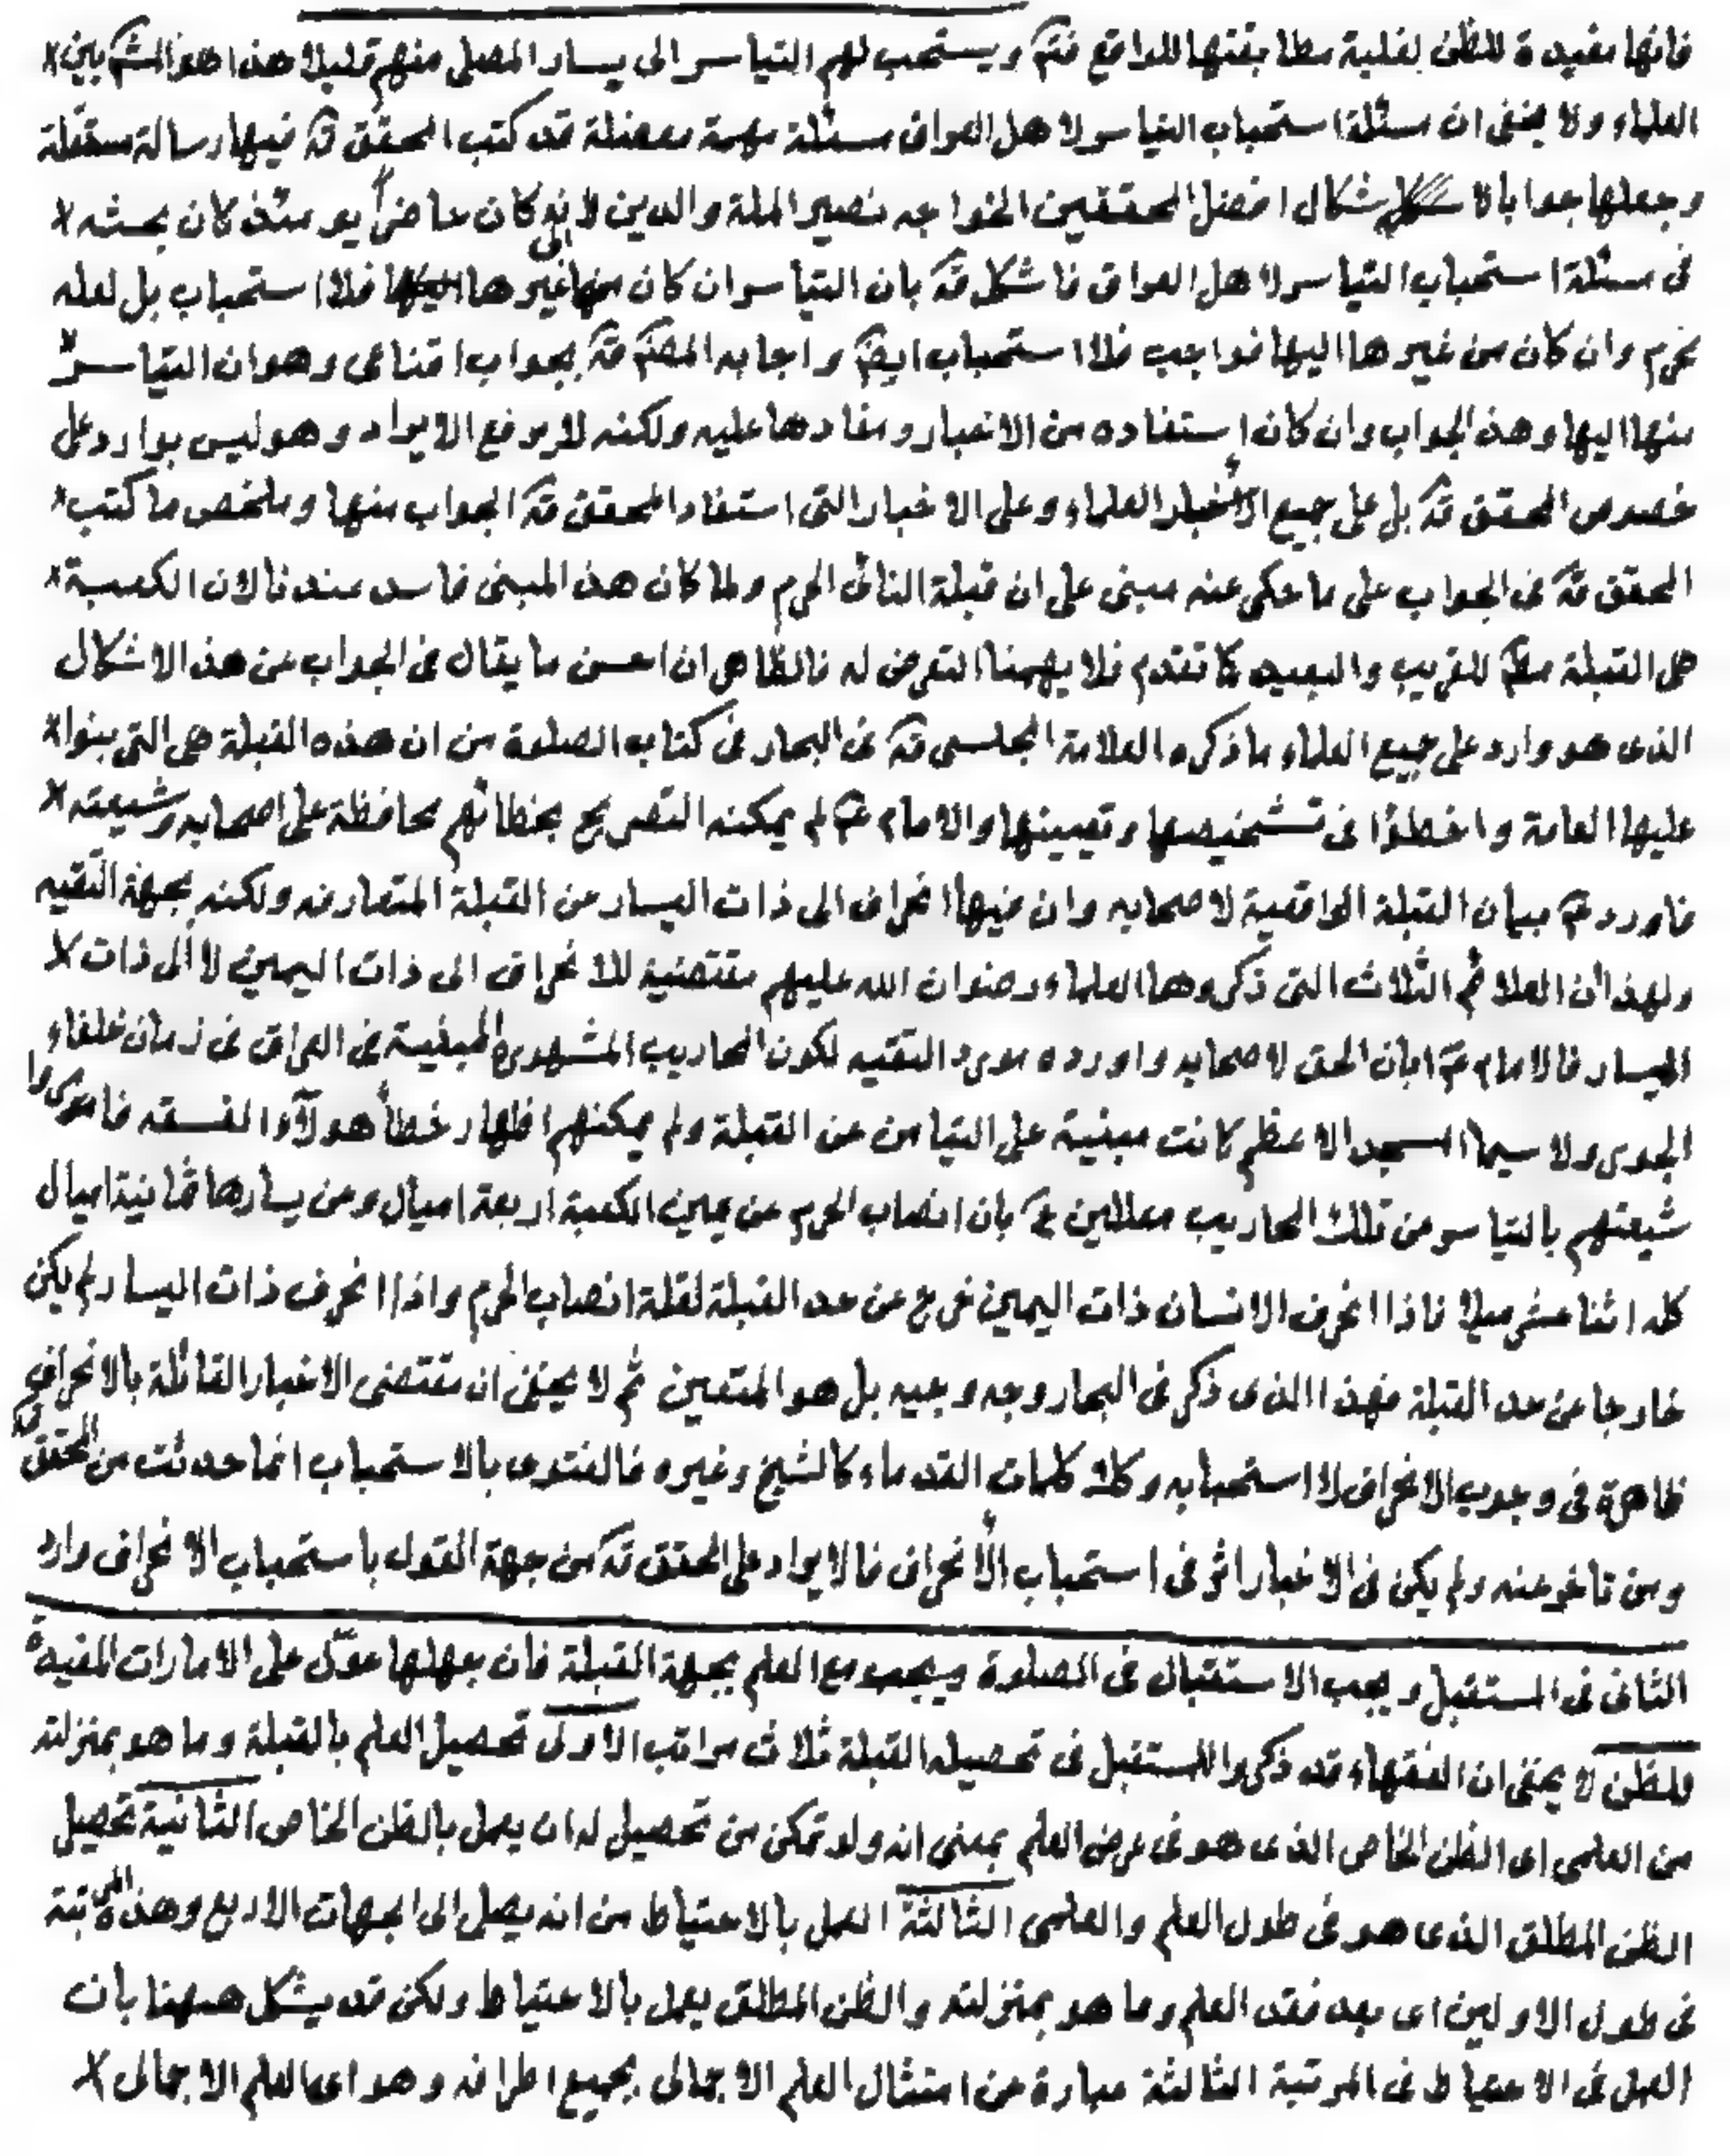 فانها مفيدة للظن بغلبة مطابقتها للواقع فتم ويستحب لهم التياسر الى يسار المصلى منهم قليلا هذا هو المشـ بين
العلماء ولا يخفى ان مسئلة استحباب التياسر لاهل العراق مسئلة مهمة معضلة قد كتب المحقق قه فيها رسالة مستقلة
وجعلها جوابا لا شكال افضل المحققين الخواجه نصير الملة والدين لانه كان حاضراً يومئذ كان بحثه
فى مسئلة استحباب التياسر لاهل العراق فاشكل قه بان التياسر ان كان منها الى غيرها فلا استحباب بل لعله
يحرم وان كان من غيرها اليها فواجب فلا استحباب ايضـ واجابه المصـ قه بجواب اقناعى وهو ان التياسر
منها اليها وهذ الجواب وان كان استفاده من الاخبار ومفادها عليه ولكنه لا يرفع الايراد وهو ليس بوارد على
خصوص المحقق قه بل على جميع العلماء وعلى الاخبار التى استفاد المحقق قه الجواب منها وملخص ما كتب
المحقق قه فى الجواب على ما حكى عنه مبنى على ان قبلة النائى الحرم ولما كان هذ المبنى فاسد عندنا لان الكعبة
هى القبلة مطـ للقريب والبعيد كما تقدم فلا يهمنا التعرض له فالظاهر ان احسن ما يقال فى الجواب عن هذ الاشكال
الذى هو وارد على جميع العلماء ما ذكره العلامة المجلسى قه فى البحار فى كتاب الصلوة من ان هذه القبلة هى التى بنوا
عليها العامة واخطؤا فى تشخيصها وتعيينها والامام ع لم يمكنه التصريح بخطائهم محافظة على اصحابه وشيعته
فاورد ع بيان القبلة الواقعية لاصحابه وان فيها انحراف الى ذات اليسار عن القبلة المتعارفه ولكنه بجهة التقيه
ولهذا ان العلائم الثلاث التى ذكروها العلماء رضوان الله عليهم مقتضية للانحراف الى ذات اليمين لا الى ذات
اليسار فالامام ع ابان الحق لاصحابه واورده مورد التقيه لكون المحاريب المشهورة المبنية فى العراق فى زمان خلفاء
الجور ولا سيما المسجد الاعظم كانت مبنية على التيامن عن القبلة ولم يمكنهم اظهار خطأ هولآء الفسقه فامروا
شيعتهم بالتياسر عن تلك المحاريب معللين ع بان انصاب الحرم عن يمين الكعبة اربعة اميال وعن يسارها ثمانية اميال
كله اثنا عشر ميلا فاذا انحرف الانسان ذات اليمين خرج عن حد القبلة لقلة انصاب الحرم واذا انحرف ذات اليسار لم يكن
خارجا عن حد القبلة فهذا الذى ذكر فى البحار وجه وجيه بل هو المتعين ثم لا يخفى ان مقتضى الاخبار القائلة بالانحراف
ظاهرة فى وجوب الانحراف لا استحبابه وكك كلمات القدماء كالشيخ وغيره فالفتوى بالاستحباب انما حدثت من المحقق قه
ومن تاخر عنه ولم يكن فى الاخبار اثر فى استحباب الانحراف فالايراد على المحقق قه من جهة القول باستحباب الانحراف وارد
الثانى فى المستقبل ويجب الاستقبال فى الصلوة ويجب مع العلم بجهة القبلة فان جهلها عوّل على الامارات المفيدة
للظن لا يخفى ان الفقهاء قد ذكروا للمستقبل فى تحصيله القبلة ثلاث مراتب الاولى تحصيل العلم بالقبلة وما هو بمنزلته
من العلمى اى الظن الخاص الذى هو فى عرض العلم بمعنى انه ولو تمكن من تحصيل له ان يعمل بالظن الخاص الثانية تحصيل
الظن المطلق الذى هو فى طول العلم والعلمى الثالثة العمل بالاحتياط من انه يصلى الى الجهات الاربع وهذه المرتبة
فى طول الاولين اى بعد فقد العلم وما هو بمنزلته والظن المطلق يعمل بالاحتياط ولكن قد يشكل هيهنا بان
العمل فى الاحتياط فى المرتبة الثالثة عبارة عن امتثال العلم الاجمالى بجميع اطرافه وهو اى العلم الاجمالى